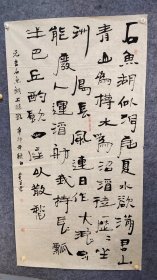 石魚湖似洞庭夏水欲滿君山
青山為樽水為沼酒徒歷〻坐
洲島長風連日作大浪不
能廢人運酒舫我持長瓢
坐巴丘酌飲四座以散愁
元結石魚湖上醉歌